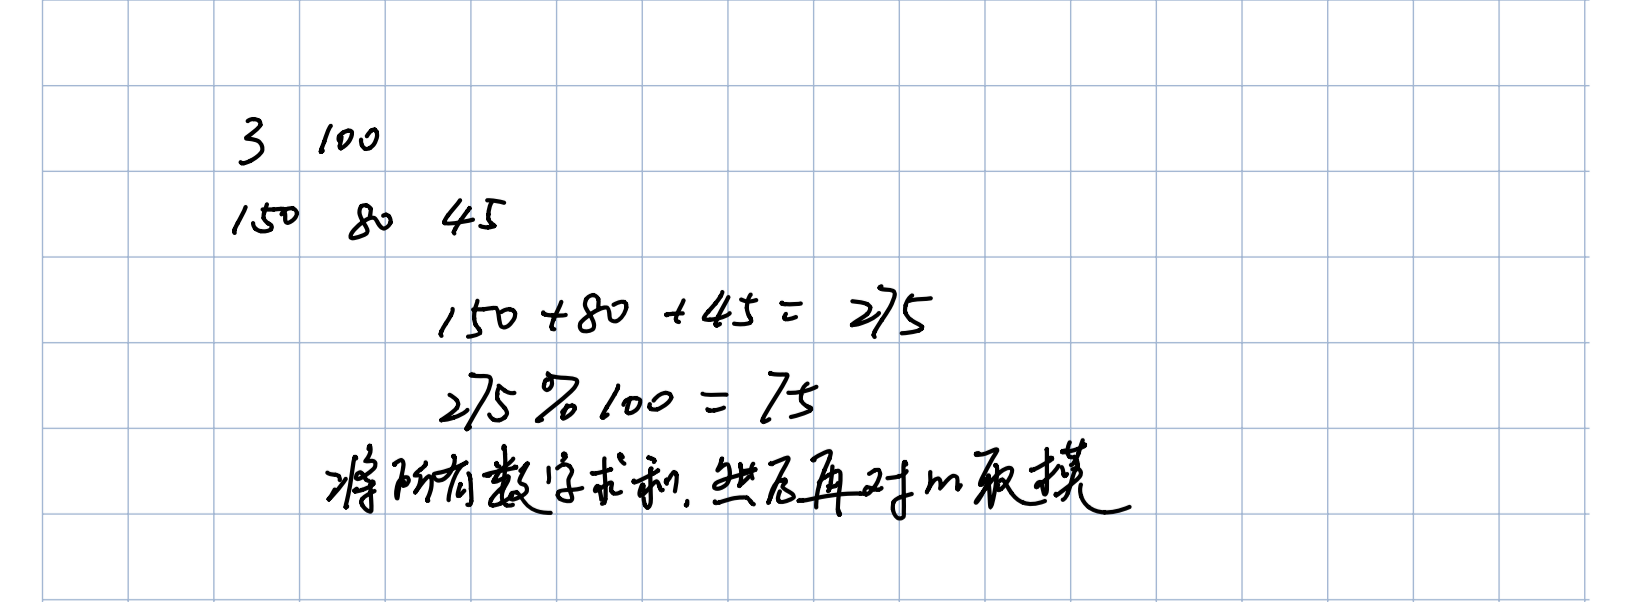 3 100
150 80 45
150 + 80 + 45 = 275
275 % 100 = 75
将所有数字求和, 然后再对m取模